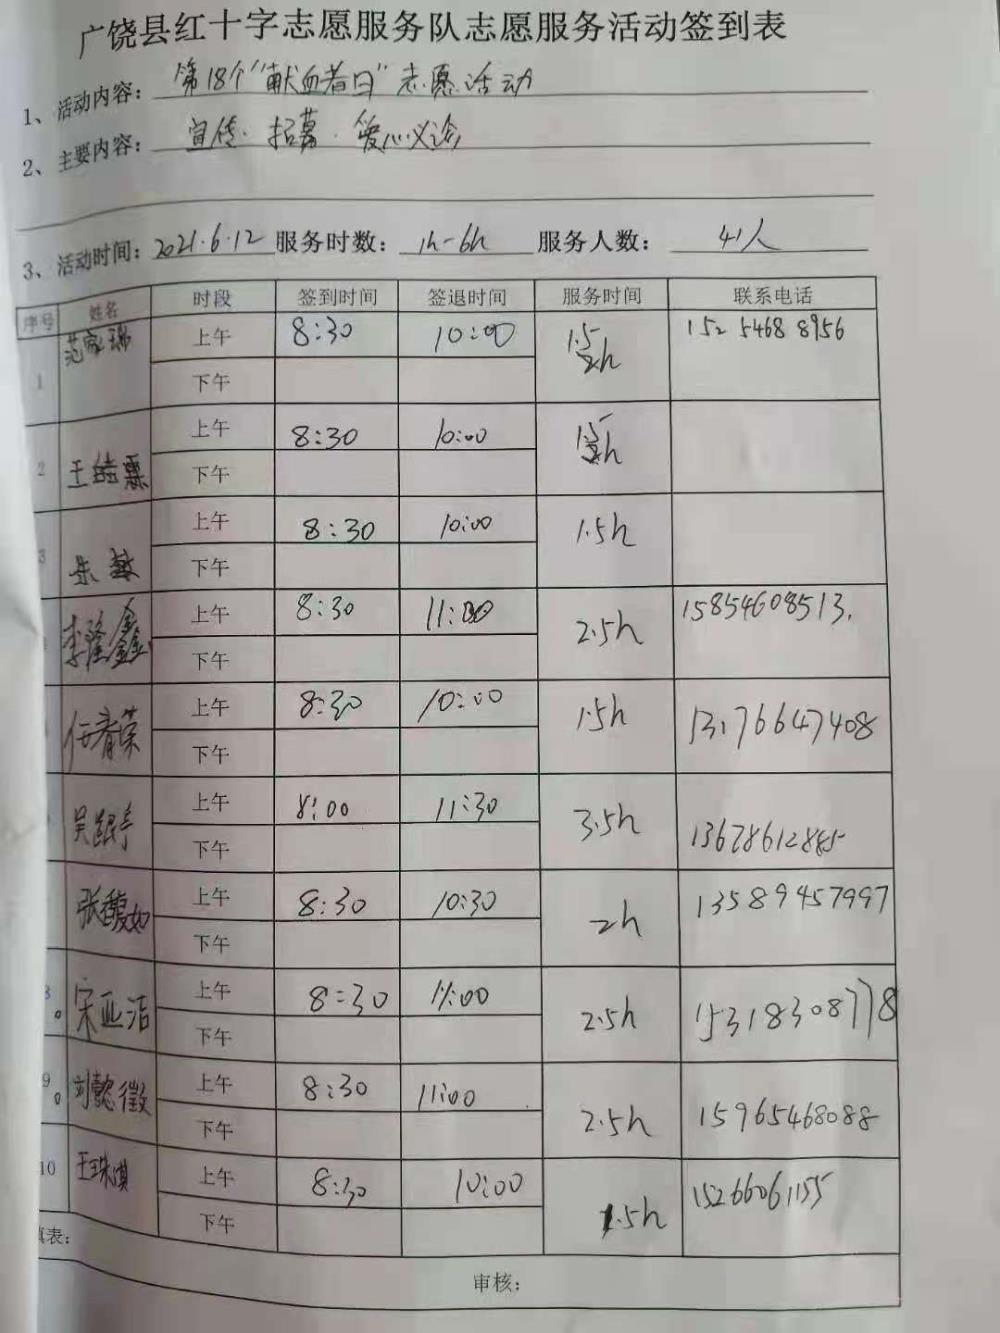 广饶县红十字志愿服务队志愿服务活动签到表
1、活动内容：第18个"献血者日"志愿活动
2、主要内容：宣传·招募·爱心义诊
3、活动时间：2021.6.12 服务时数：1h-6h 服务人数：41人
序号 姓名 时段 签到时间 签退时间 服务时间 联系电话
1 范家瑞 上午 8:30 10:00 1.5h 152 5468 8956
下午
2 王 霖 上午 8:30 10:00 1.5h
下午
3 朱 上午 8:30 10:00 1.5h
下午
李隆鑫 上午 8:30 11:00 2.5h 15854608513.
下午
任春荣 上午 8:30 10:00 1.5h 13176647408
下午
吴 上午 8:00 11:30 3.5h 13678612885
下午
张馥如 上午 8:30 10:30 2h 13589457997
下午
8 宋亚洁 上午 8:30 11:00 2.5h 15318308778
下午
9 刘懿徵 上午 8:30 11:00 2.5h 15965468088
下午
10 王珠琪 上午 8:30 10:00 1.5h 15266061155
下午
填表：
审核：